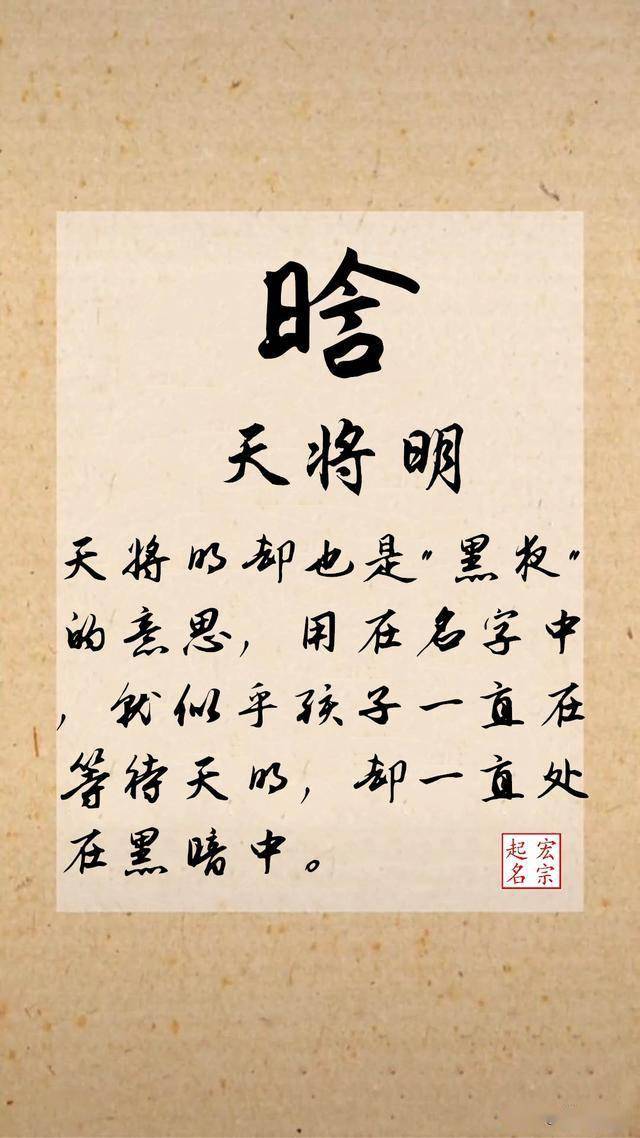 晗
天将明
天将明却也是"黑夜"
的意思，用在名字中
，就似乎孩子一直在
等待天明，却一直处
在黑暗中。
宏宗
起名